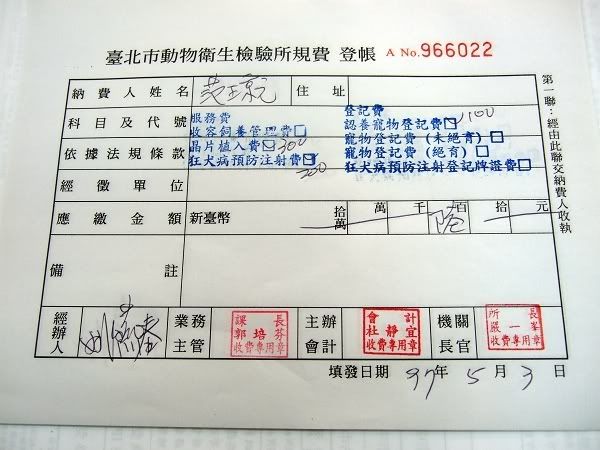 臺北市動物衛生檢驗所規費 登帳 A No.966022
納費人姓名 住址
科目及代號
服務費
收容飼養管理費
登記費
認養寵物登記費 100
依據法規條款
晶片植入費 300
狂犬病預防注射費 200
寵物登記費(未絕育)
寵物登記費(絕育)
狂犬病預防注射登記牌證費
經徵單位
應繳金額 新臺幣 拾萬 萬 千 陸 百 拾 元
備註
經辦人 業務主管 課長 郭培芬 收費專用章 主辦會計 會計 杜靜宜 收費專用章 機關長官 所長 嚴一峯 收費專用章
填發日期 97年5月3日
第一聯:經由此聯交納費人收執